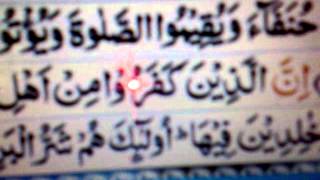 حُنَفَآءَ وَيُقِيْمُوا الصَّلٰوةَ وَيُؤْتُو
اِنَّ الَّذِيْنَ كَفَرُوْا مِنْ اَهْلِ
خٰلِدِيْنَ فِيْهَا ؕ اُولٰٓئِكَ هُمْ شَرُّ الْبَرِ